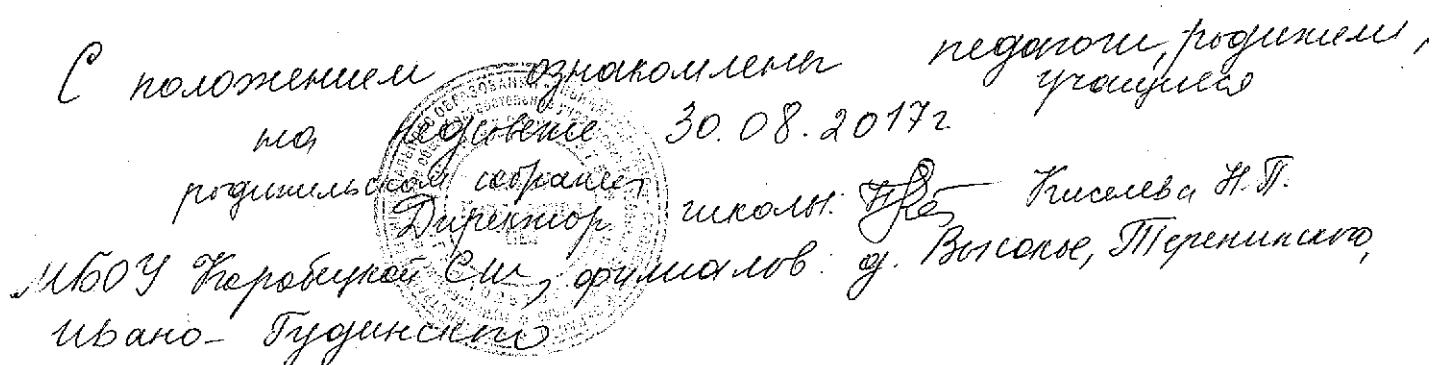 С положением ознакомлены педагоги, родители,
учащиеся
на педсовете 30.08.2017г.
родительском собрании
Директор школы: Киселева Н.П.
МБОУ Коробецкой СШ, филиалов: д. Высокое, Теренинского,
Ивано-Гудинского